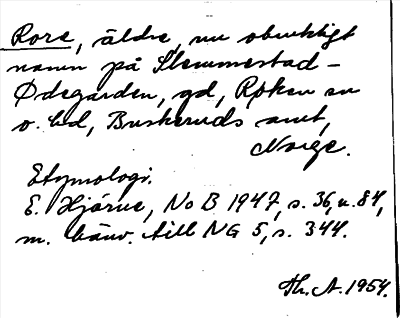 Rore, äldre, nu obrukligt
namn på Slemmestad-
Ødegården, gd, Røken sn
o. hd, Buskeruds amt,
Norge.
Etymologi.
E. Hjärne, NoB 1947, s. 36, n. 84,
m. hänv. till NG 5, s. 344.
Th. A. 1954.